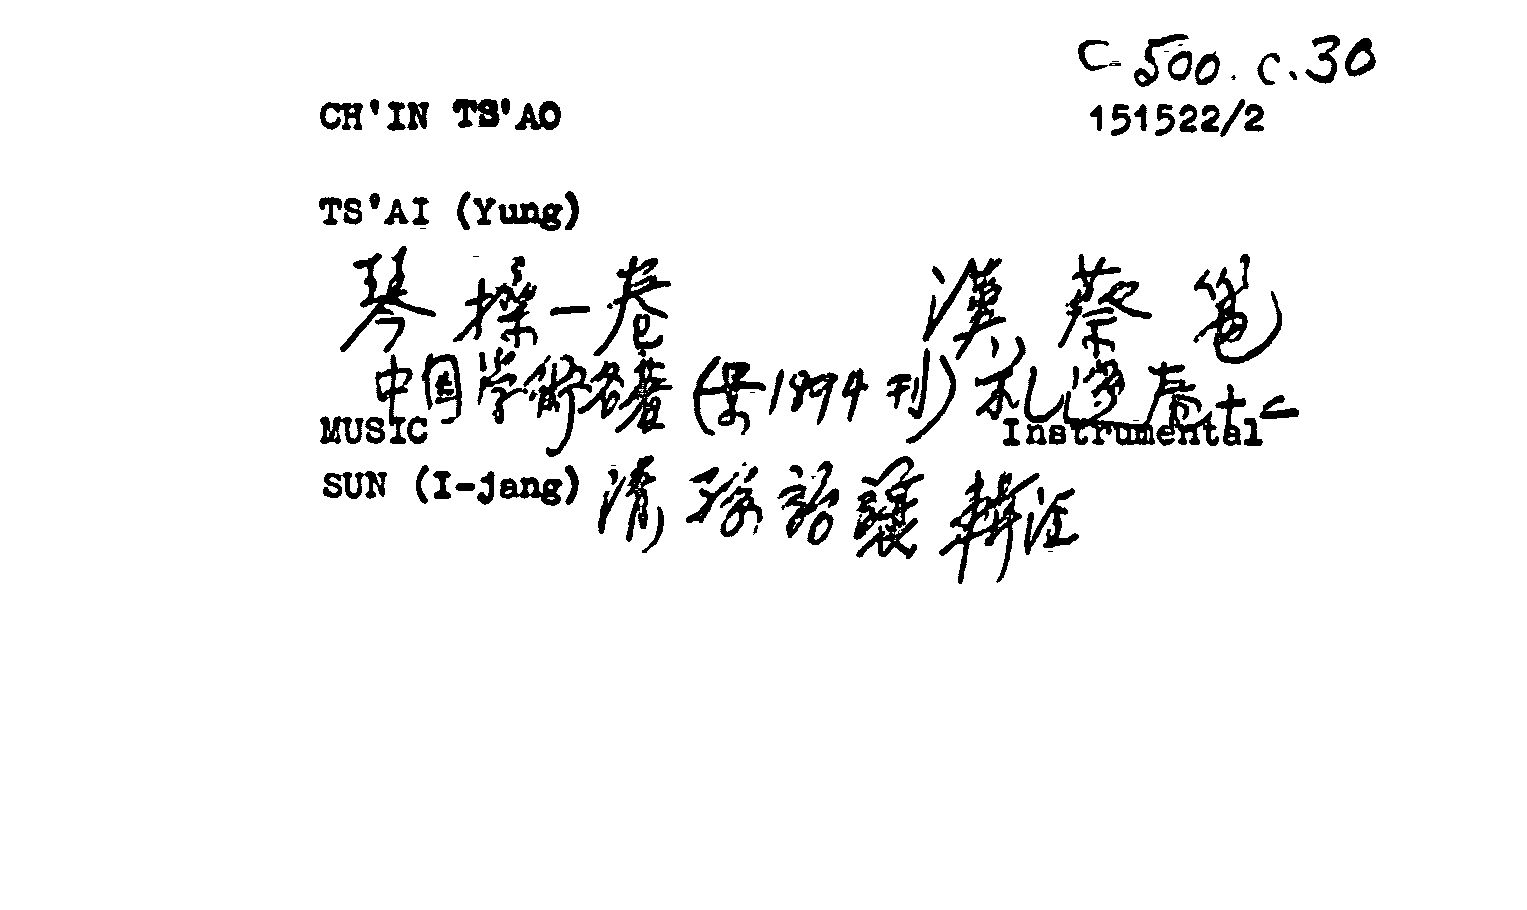 C-500.c.30
CH'IN TS'AO 151522/2
TS'AI (Yung)
琴操一卷 漢蔡邕
中国学術名著(景1894刊)札迻卷十二
MUSIC Instrumental
SUN (I-jang) 清孫詒讓輯注